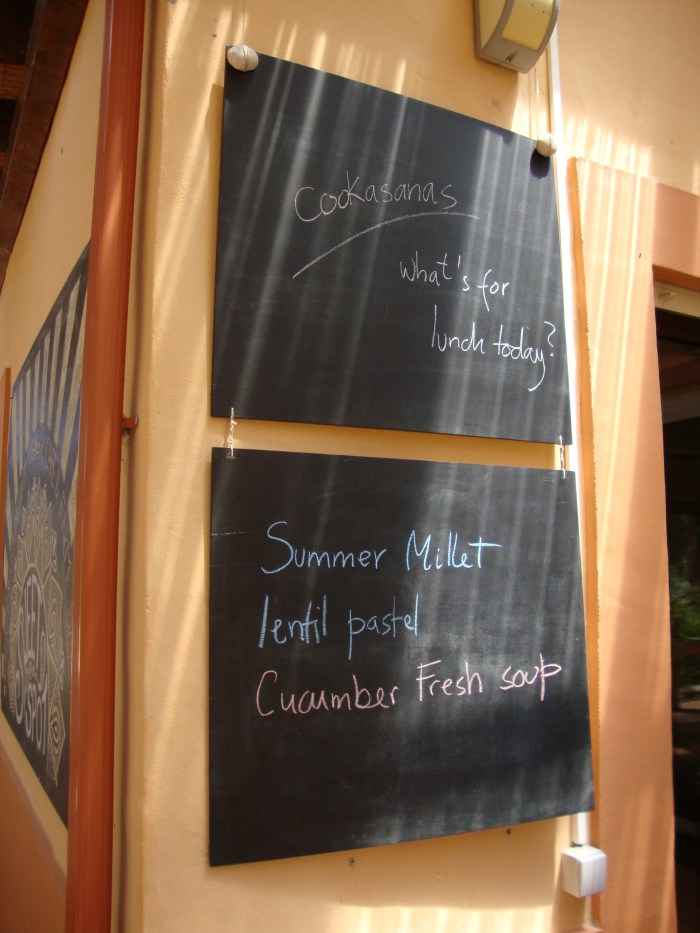 Cookasanas
What's for
lunch today?
Summer Millet
lentil pastel
Cucumber Fresh soup
SPOT